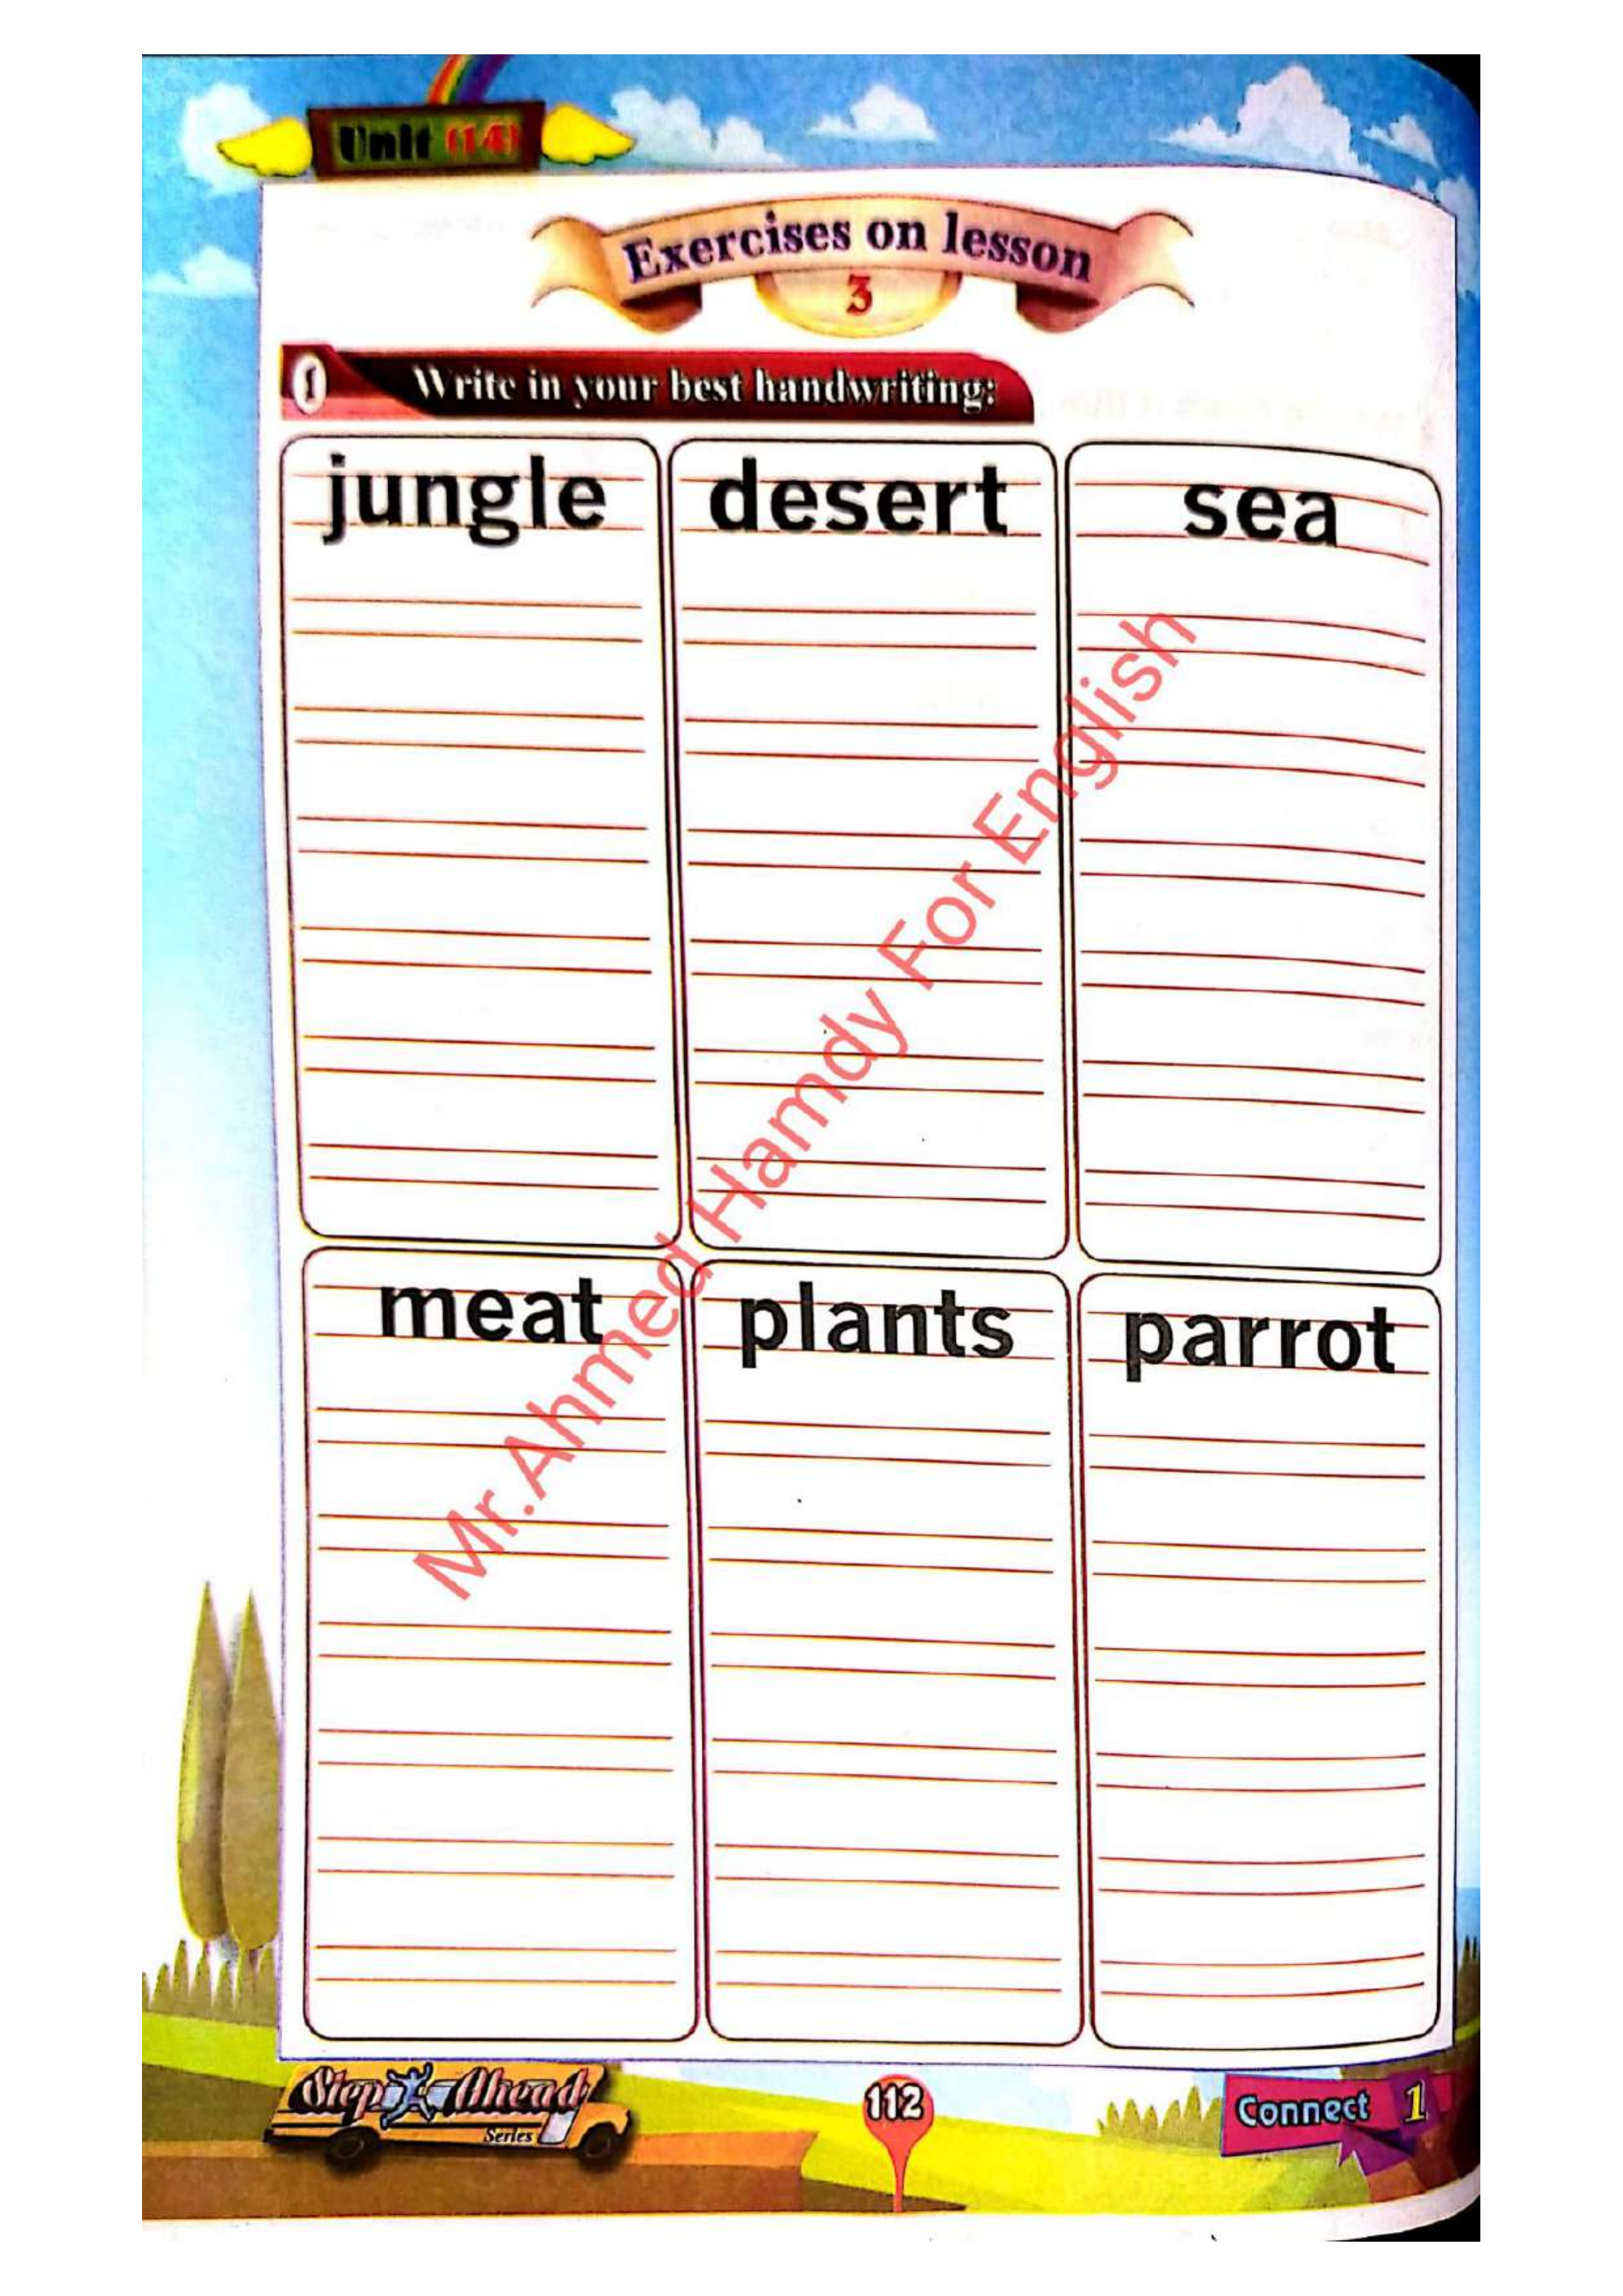 Unit (14)
Exercises on lesson
3
1 Write in your best handwriting:
jungle desert sea
meat plants parrot
Mr.Ahmed Hamdy For English
Step Ahead
Series
112
Connect 1